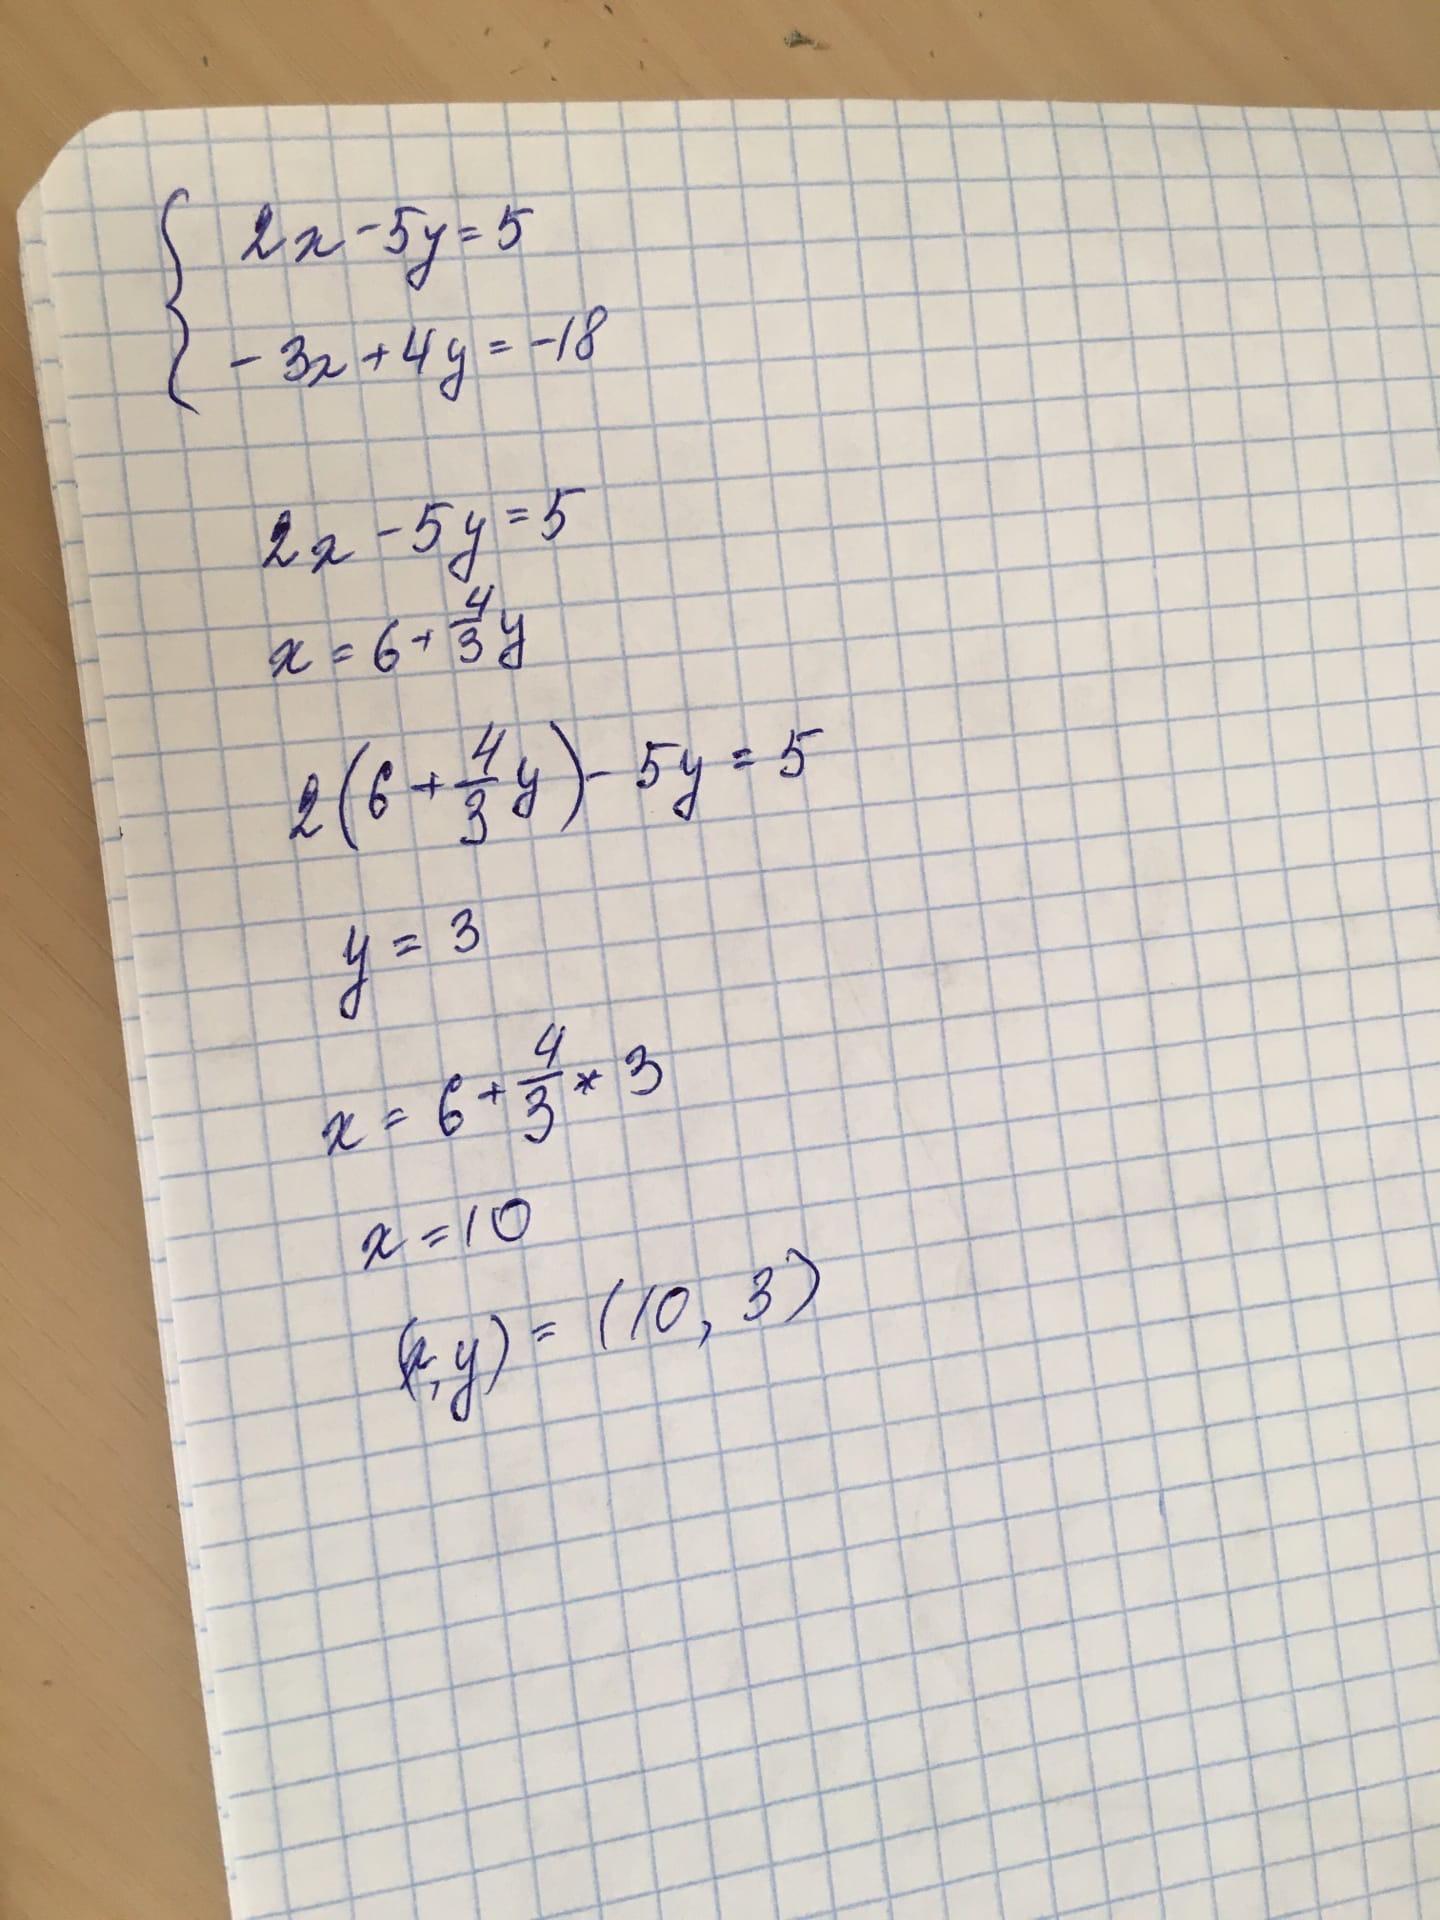 2x - 5y = 5
-3x + 4y = -18
2x - 5y = 5
x = 6 + 4/3 y
2(6 + 4/3 y) - 5y = 5
y = 3
x = 6 + 4/3 * 3
x = 10
(x, y) = (10, 3)